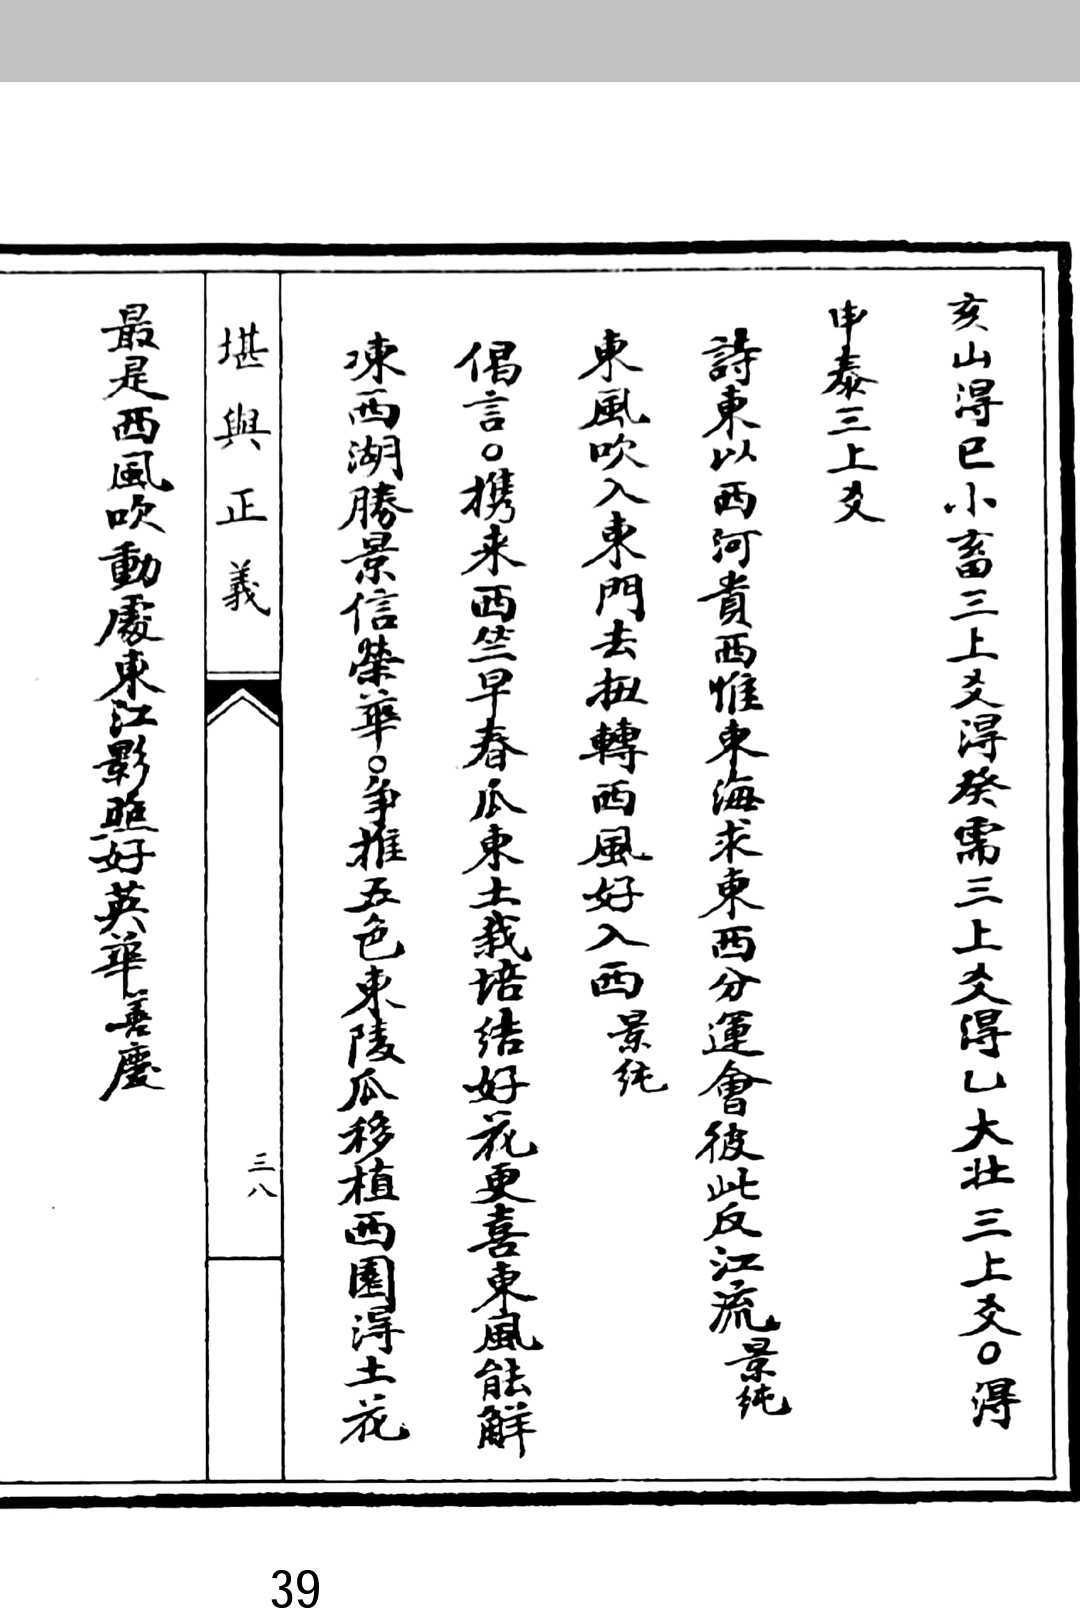 亥山得巳小畜三上爻得癸需三上爻得乙大壯三上爻○得
申泰三上爻
詩東以西河貴西惟東海求東西分運會彼此反江流景純
東風吹入東門去扭轉西風好入西景純
偈言○携来西竺早春瓜東土栽培结好花更喜東風能解
凍西湖勝景信榮華○争推五色東陵瓜移植西園得土花
堪輿正義
三八
最是西風吹動處東江影照好英華善慶
39